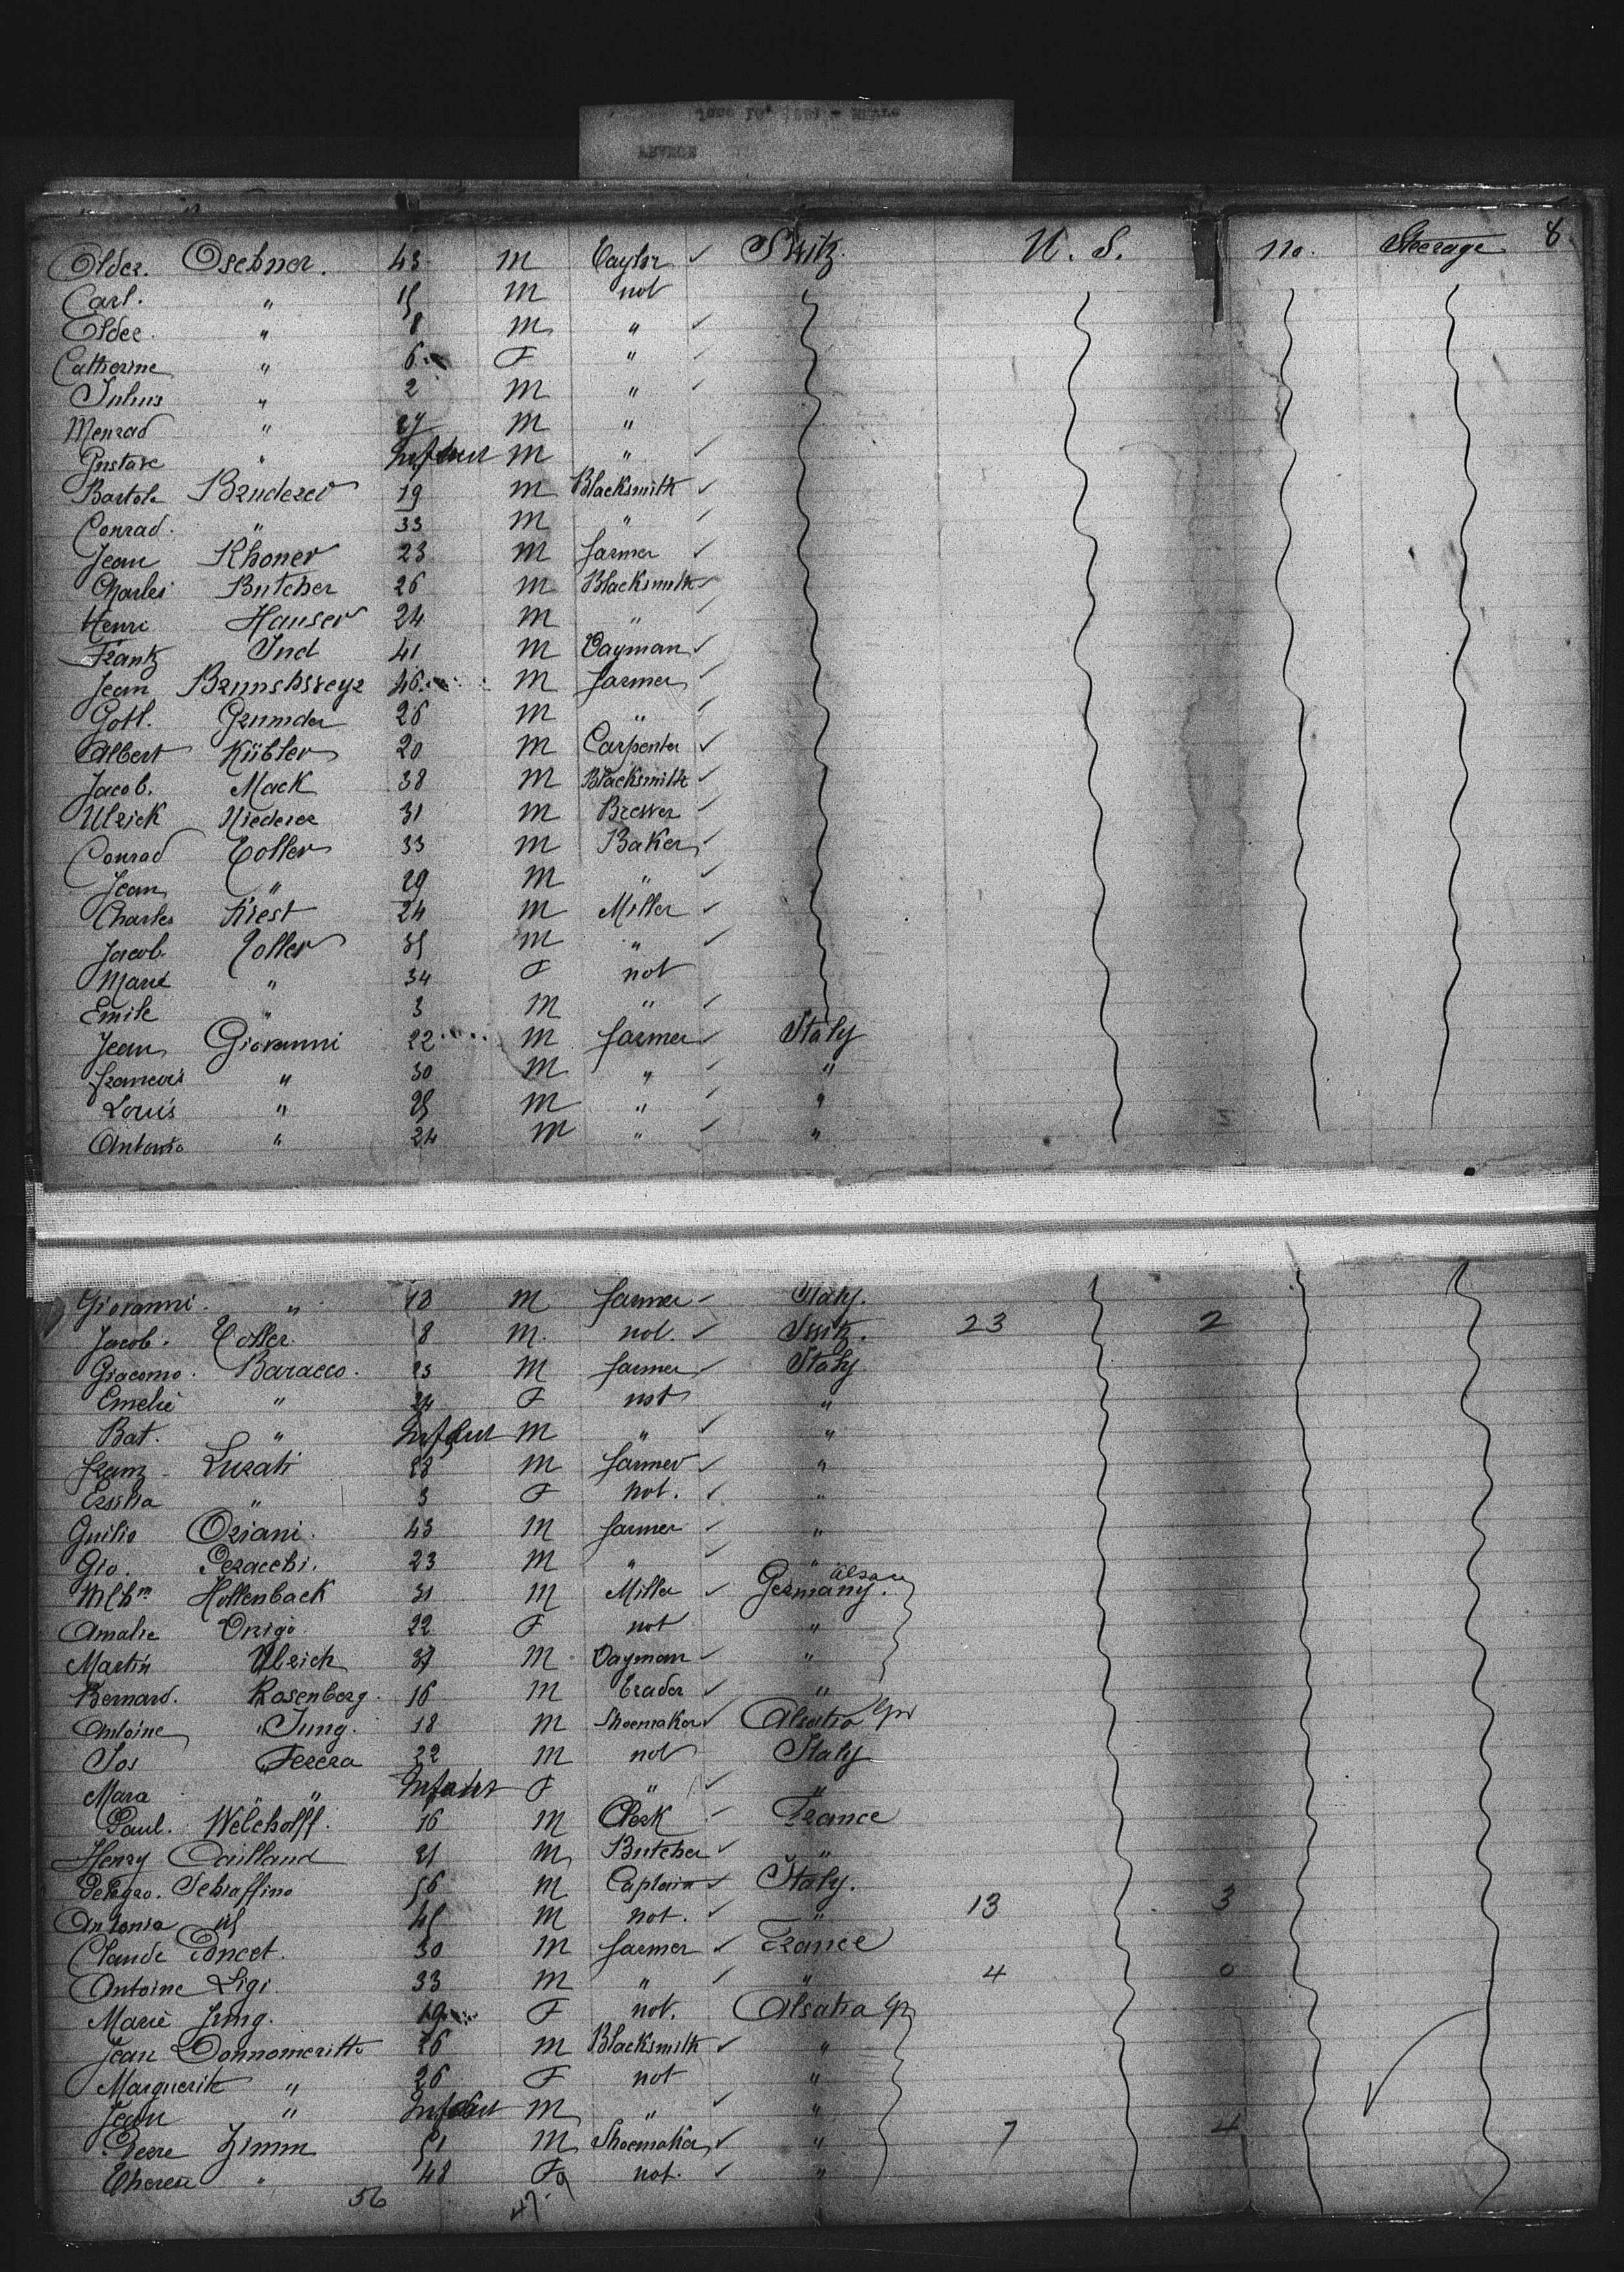 Older. Osebner. 43 m Taylor ✓ Switz. U. S. no. Steerage 8
Carl. " 15 m not
Older. " 8 m " ✓
Catherine " 6 F " ✓
Julius " 2 m " ✓
Menrad " 27 m "
Gustave " Infant m " ✓
Bartole Bruderer 19 m Blacksmith ✓
Conrad. " 33 m " ✓
Jean Rhoner 23 m farmer ✓
Charles Butcher 26 m Blacksmith ✓
Henri Hauser 24 m " ✓
Frantz Ind 41 m Dayman ✓
Jean Brunshsveyr 46 m farmer ✓
Gotl. Grunder 26 m " ✓
Albert Kübler 20 m Carpenter ✓
Jacob. Mack 38 m Blacksmith ✓
Ulrick Niederer 31 m Brewer ✓
Conrad Toller 33 m Baker ✓
Jean " 29 m " ✓
Charles Kiest 24 m Miller ✓
Jacob. Toller 35 m " ✓
Marie " 34 F not
Emile " 3 m " ✓
Jean Giovanni 22 m farmer ✓ Italy
francois " 30 m " ✓ "
Louis " 25 m " ✓ "
Antonio " 24 m " ✓ "
Giovanni. " 18 m farmer ✓ Italy.
Jacob. Toller. 8 m. not. ✓ Switz. 23 2
Giacomo. Baracco. 23 m farmer ✓ Italy
Emelie " 24 F not "
Bat. " Infant m " ✓ "
franz Lurati 28 m farmer ✓ "
Ersilia " 3 F not. ✓ "
Guilio Oriani. 43 m farmer ✓ "
Gio. Peracchi. 23 m " ✓ "
Wlhm Hollenback 31 m Miller ✓ Germany. Alsace
Amalie Origo. 22 F not "
Martin Ulrich 37 m Dayman ✓ "
Bernard. Rosenberg. 16 m Trader ✓ "
Antoine Jung. 18 m Shoemaker ✓ Alsatia Gr
Jos Ferera 22 m not Italy
Mara " Infant F " ✓ "
Paul. Welcholff. 16 m Clerk ✓ France
Henry Cailland 21 m Butcher ✓ "
Pelegro. Schiaffino 56 m Captain ✓ Italy.
Antonia 45 m not. ✓ " 13 3
Claude Poncet. 30 m farmer ✓ France
Antoine Ligi. 33 m " ✓ " 4 0
Marie Jung. 19 F not. Alsatia Gr
Jean Donnomeritte 26 m Blacksmith ✓ "
Marguerite " 26 F not "
Jean " Infant m " ✓ "
Peere Zimm 51 m Shoemaker ✓ " 7 4
Therese " 48 F not. ✓ "
56 47.9